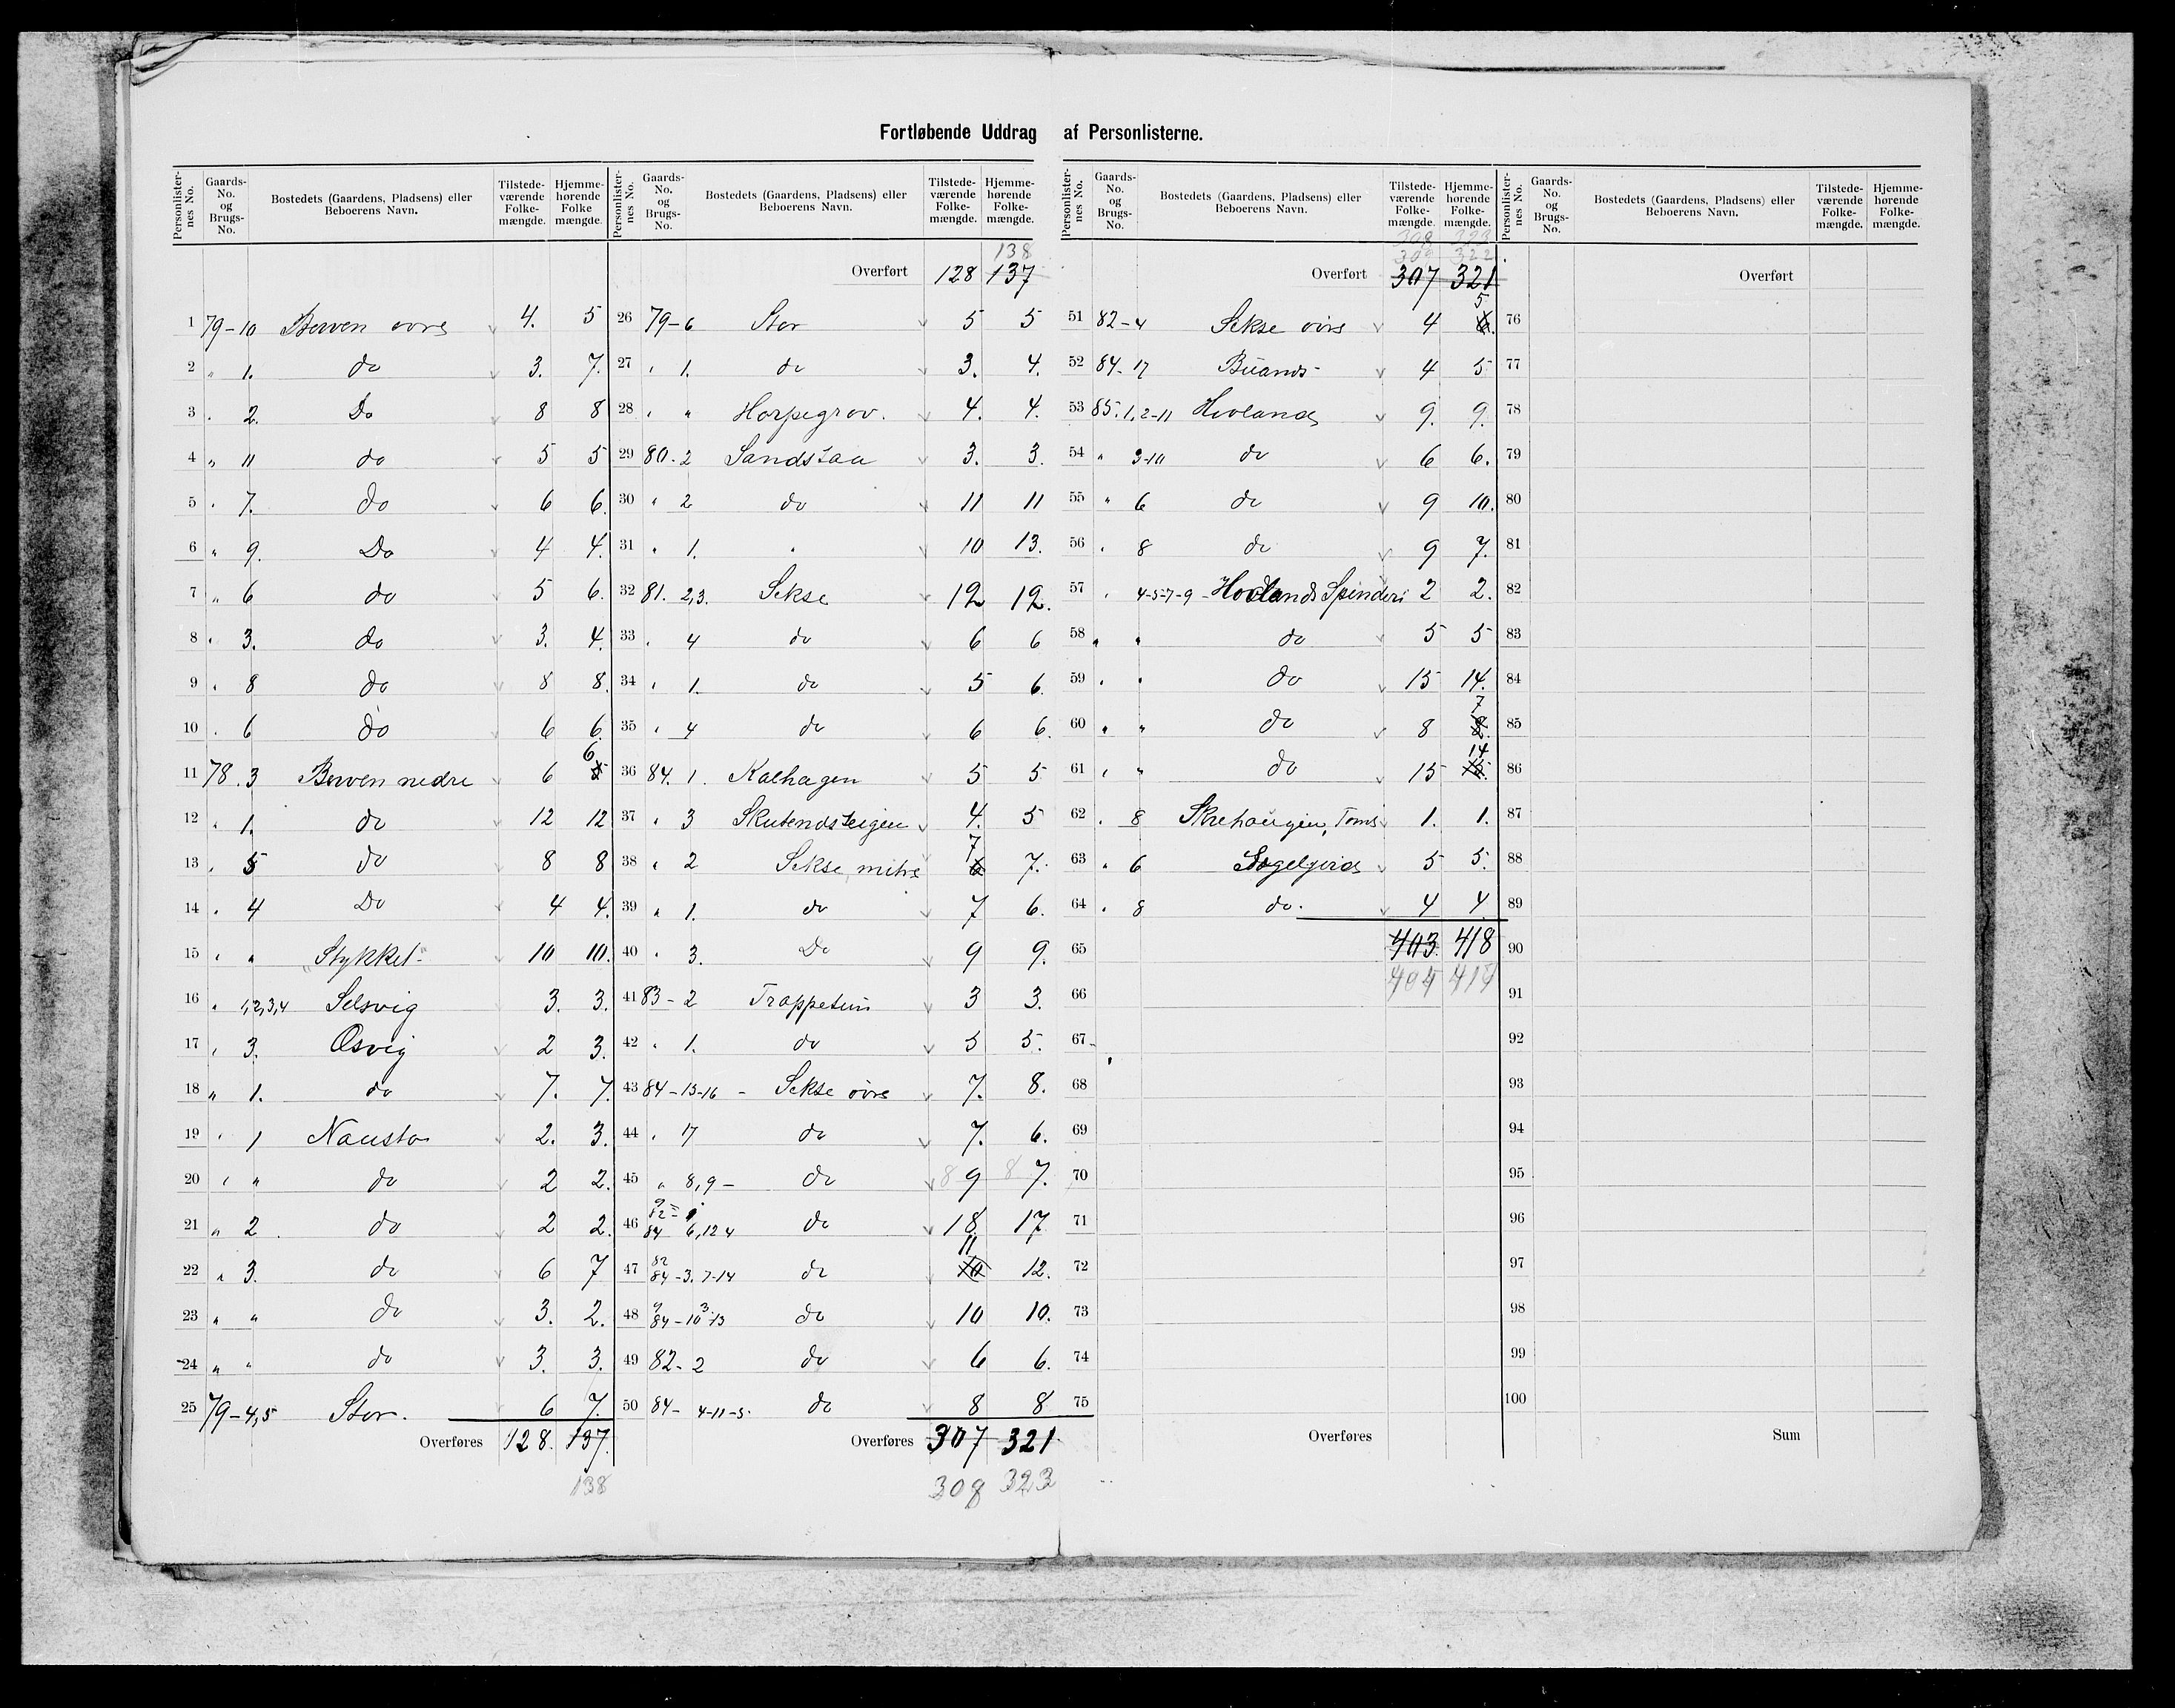 Fortløbende Uddrag af Personlisterne.
Personlisternes No. Gaards-No. og Brugs-No. Bostedets (Gaardens, Pladsens) eller Beboerens Navn. Tilstedeværende Folkemængde. Hjemmehørende Folkemængde.
1 79-10 Berven øvre 4. 5
2 " 1. do 3. 7.
3 " 2. Do 8 8
4 " 11 do 5 5
5 " 7. do 6 6.
6 " 9. Do 4 4.
7 " 6 do 5 6.
8 " 3. do 3. 4.
9 " 8 do 8 8.
10 " 6 do 6 6.
11 78. 3 Berven nedre 6 5 6
12 " 1. do 12 12
13 " 5 do 8 8
14 " 4 Do 4 4.
15 " " "Stykket" 10 10.
16 " 1,2,3,4 Selsvig 3. 3.
17 " 3. Osvig 2 3.
18 " 1. do 7. 7.
19 " 1 Nausta 2. 3.
20 " " do 2 2.
21 " 2 do 2 2.
22 " 3. do 6 7
23 " " do 3. 2.
24 " " do 3. 3.
25 79-4,5 Stor. 6 7.
Overføres 128. 137.
138
Personlisternes No. Gaards-No. og Brugs-No. Bostedets (Gaardens, Pladsens) eller Beboerens Navn. Tilstedeværende Folkemængde. Hjemmehørende Folkemængde.
138
Overført 128 137
26 79-6 Stor 5 5
27 " 1. do 3. 4.
28 " " Horpegrov. 4. 4.
29 80.2 Sandstaa 3. 3.
30 " 2 do 11 11
31 " 1. " 10 13.
32 81. 2,3. Sekse 12 12.
33 " 4 do 6 6
34 " 1. do 5 6.
35 " 4 do 6 6.
36 84. 1. Kalhagen 5 5
37 " 3 Skutendsteigen 4. 5
38 " 2 Sekse, mitre 6 7 7.
39 " 1. do 7 6.
40 " 3. Do 9 9.
41 83-2 Trappetun 3 3.
42 " 1. do 5 5.
43 84-15-16 - Sekse øvre 7. 8.
44 " 17 do 7. 6.
45 " 8,9 - do 8 9 8 7.
46 84 6,12 4 do 18 17
47 82 84-3.7-14 do 10 11 12.
48 84-10 3 13 do 10 10.
49 82-2 do 6 6.
50 84- 4-11-5. do 8 8
Overføres 307 321
308 323
Personlisternes No. Gaards-No. og Brugs-No. Bostedets (Gaardens, Pladsens) eller Beboerens Navn. Tilstedeværende Folkemængde. Hjemmehørende Folkemængde.
308 323
322
Overført 307 321
51 82-4 Sekse øvre 4 6. 5
52 84-17 Buand 4 5
53 85. 1,2-11 Hovland 9. 9.
54 " 3-10 do 6 6.
55 " 6 do 9 10.
56 " 8 do 9 7.
57 " 4-5-7-9 - Hovland Spinderi 2 2.
58 " " do 5 5
59 " " do 15 14.
60 " " do 8 8. 7
61 " " do 15 15. 14
62 " 8 Skrehaugen, Toms 1. 1.
63 " 6 5 5.
64 " 8 do. 4 4
65 403. 418
66
67
68
69
70
71
72
73
74
75
Overføres
Personlisternes No. Gaards-No. og Brugs-No. Bostedets (Gaardens, Pladsens) eller Beboerens Navn. Tilstedeværende Folkemængde. Hjemmehørende Folkemængde.
Overført
76
77
78
79
80
81
82
83
84
85
86
87
88
89
90
91
92
93
94
95
96
97
98
99
100
Sum